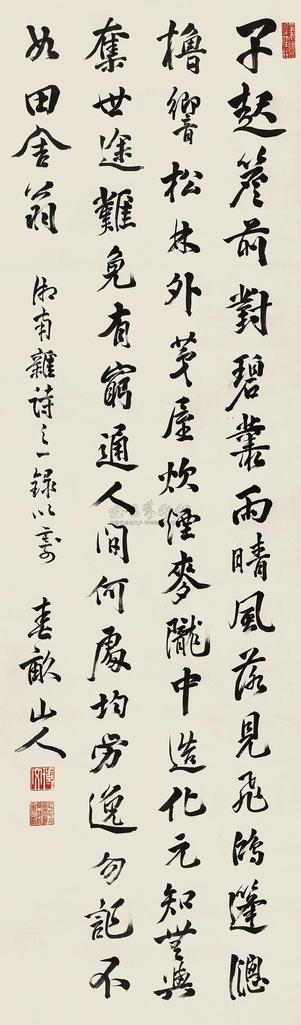 早起簷前對碧叢雨晴風落見飛鴻篷窗
櫓響松林外茅屋炊煙麥隴中造化元知無與
奪世途難免有窮通人間何處均勞逸勿不
如田舍翁
湘南雜詩之一錄以
春畝山人